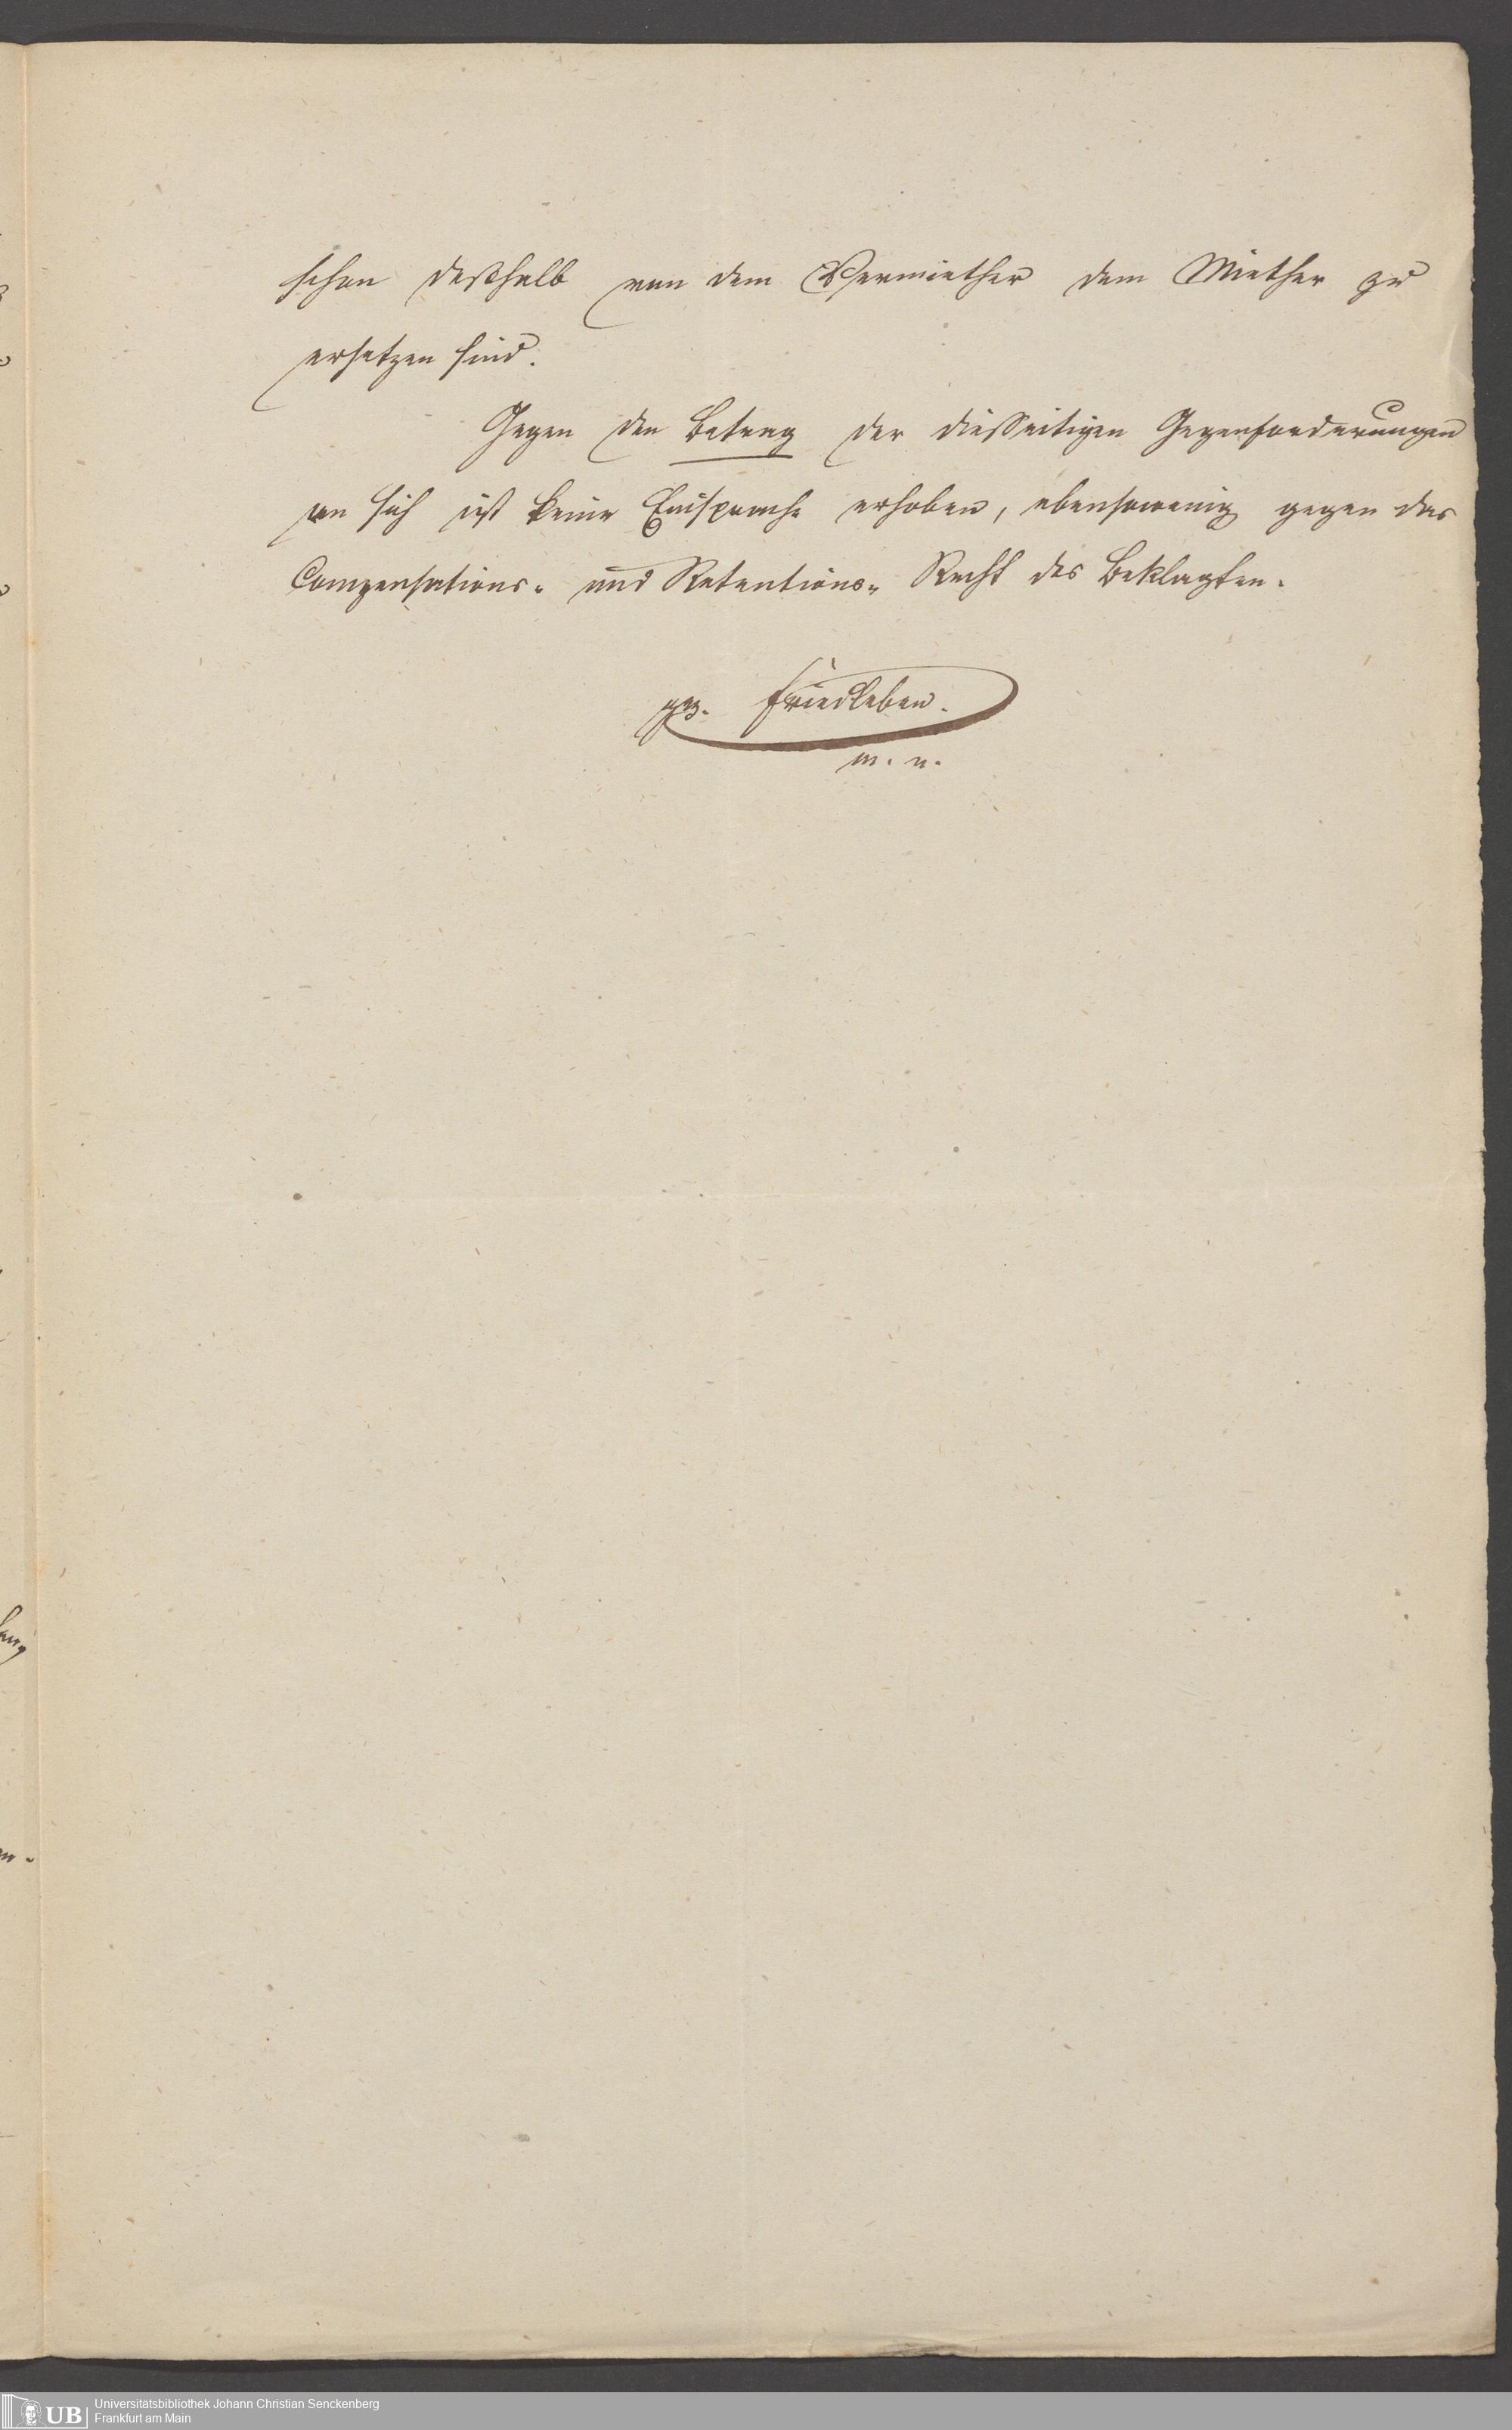 schon deßhalb von dem Vermiether dem Miether zu
ersetzen sind.
Gegen den Betrag der diesseitigen Gegenforderungen
an sich ist keine Einsprache erhoben, ebensowenig gegen das
Compensations- und Retentions- Recht des Beklagten.
gez. Friedleben.
m. n.
UB
Universitätsbibliothek Johann Christian Senckenberg
Frankfurt am Main